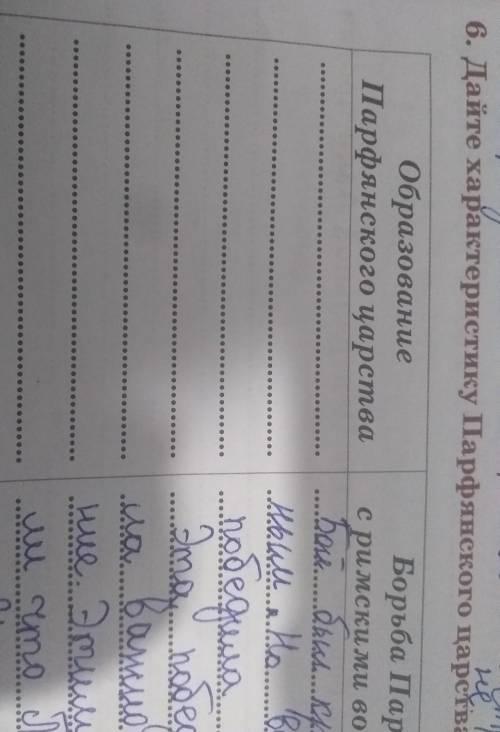 6. Дайте характеристику Парфянского царства
Образование
Парфянского царства
Борьба Пар
с римскими во
Бой был
ным. Но в
победила
Эта побед
ла важно
ние. Этим
ли что П